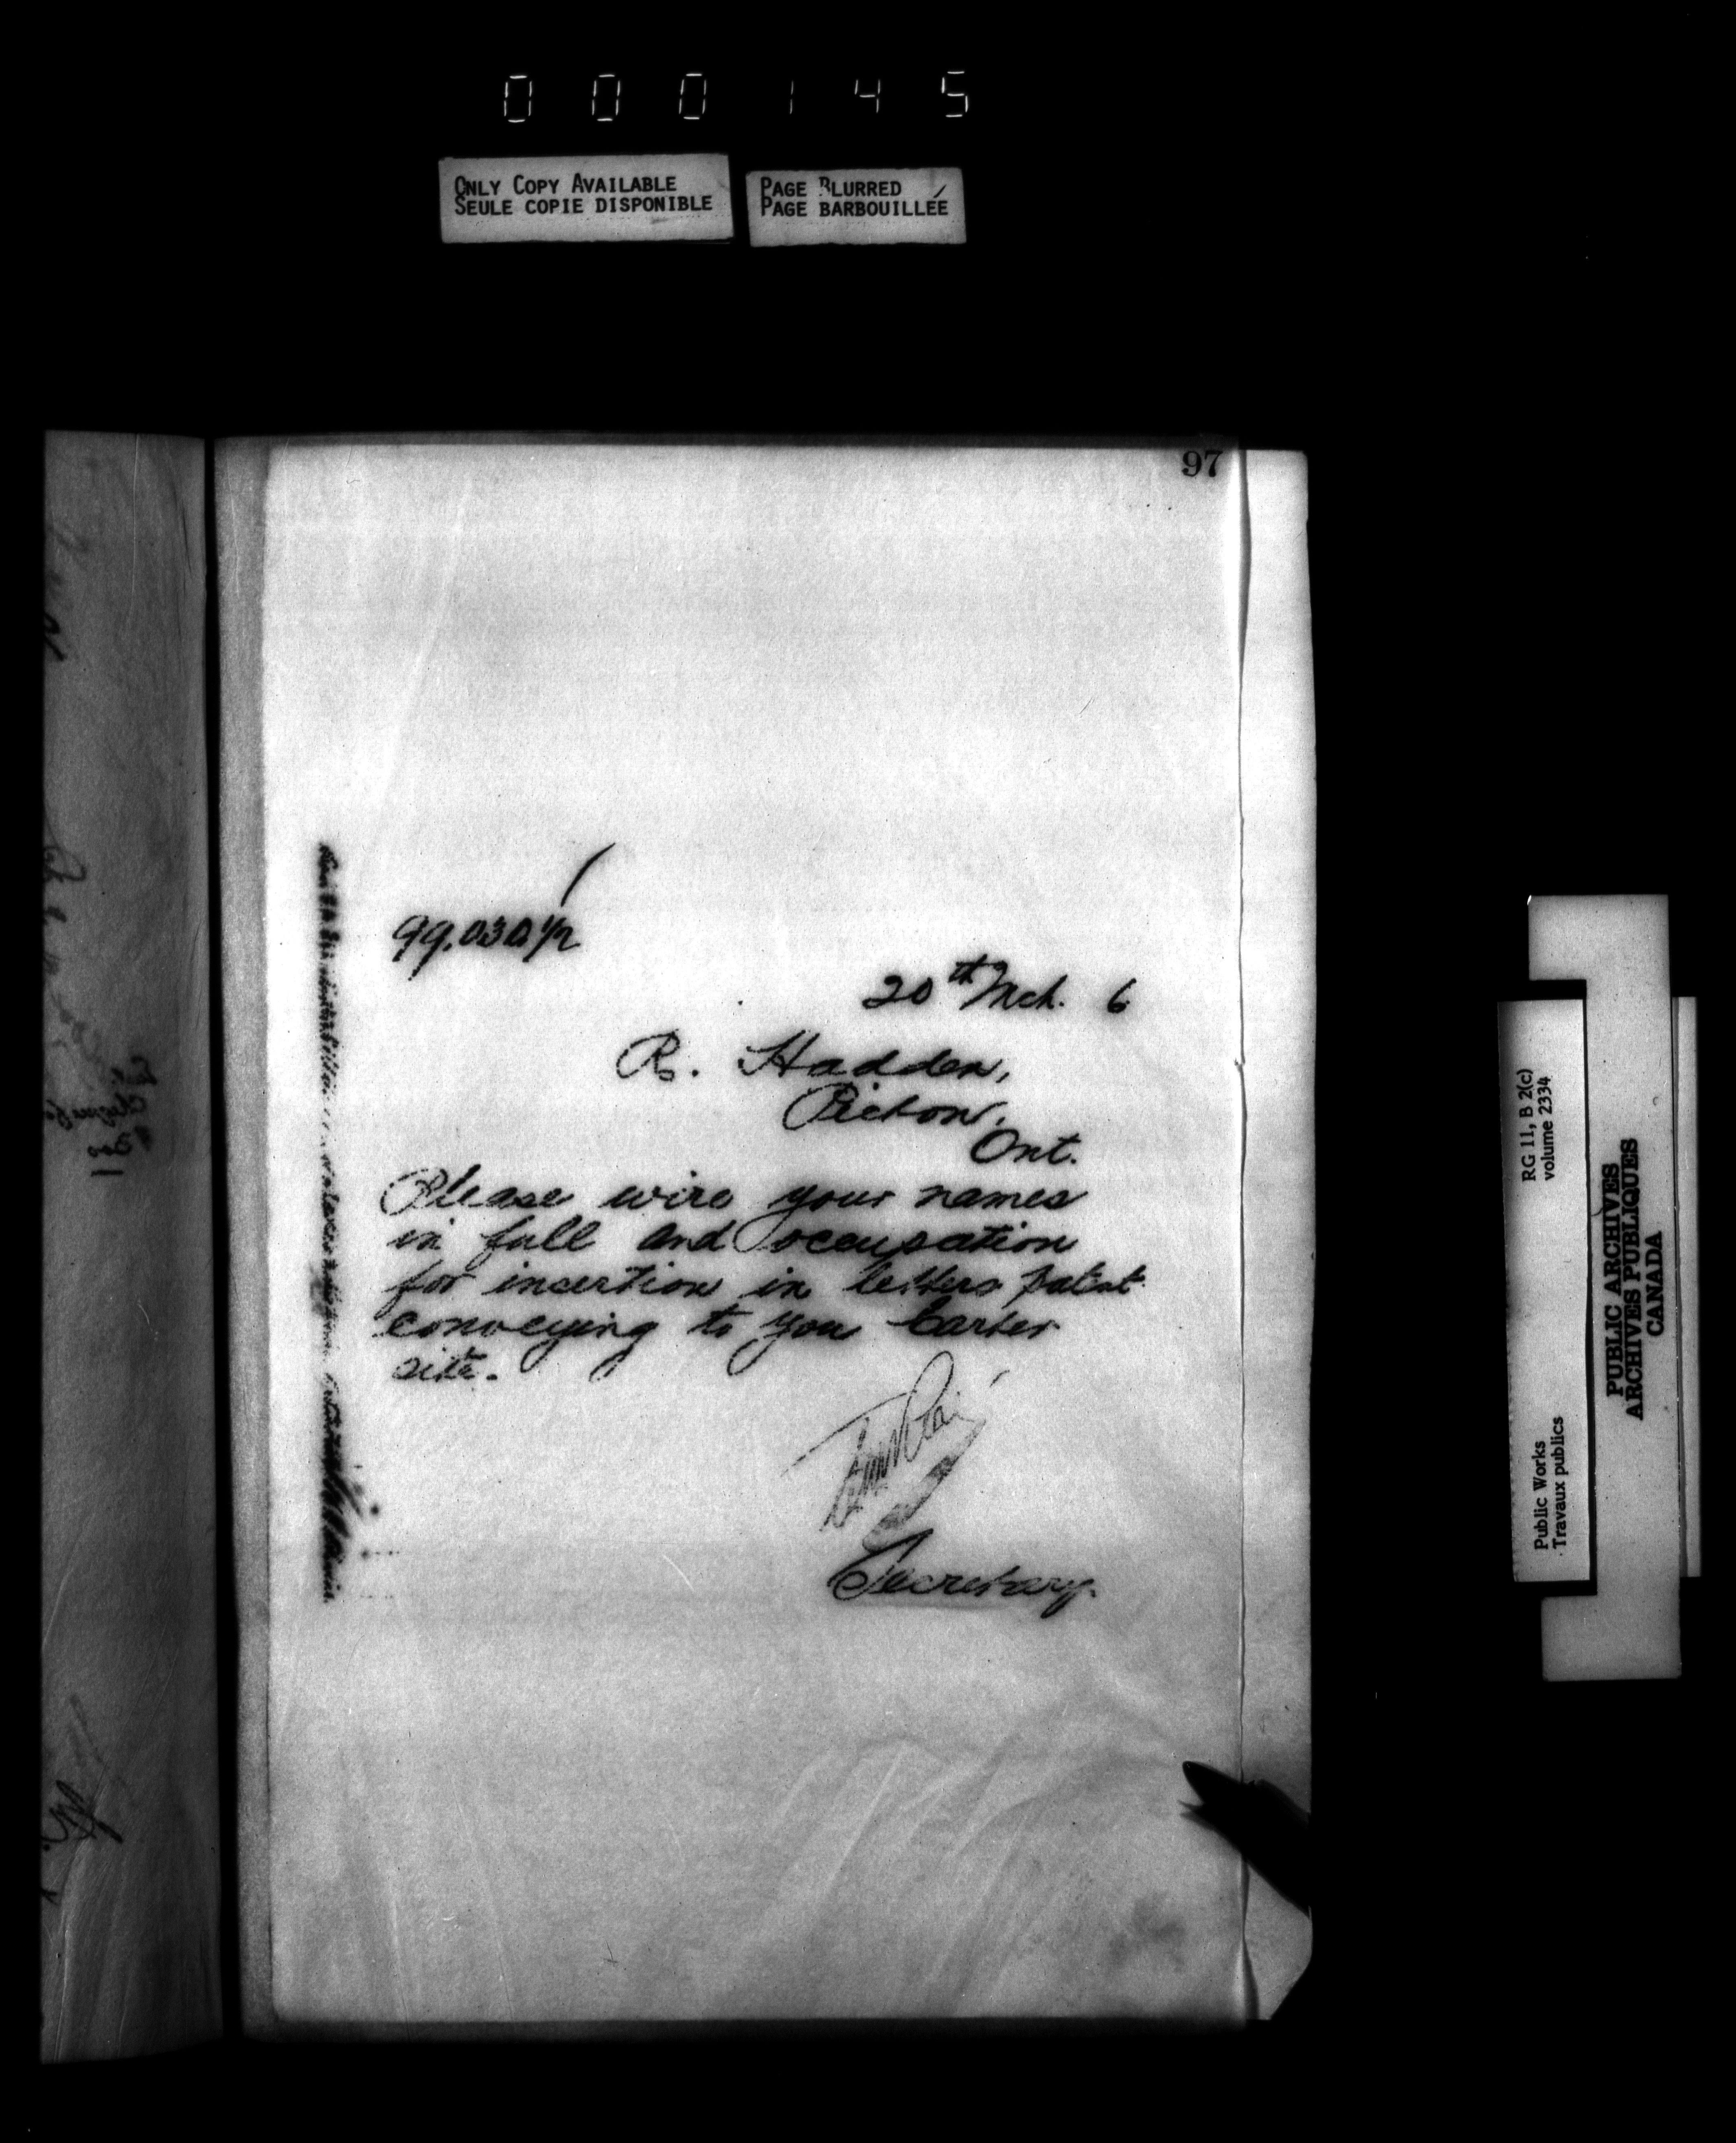 000145
ONLY COPY AVAILABLE
SEULE COPIE DISPONIBLE
PAGE BLURRED
PAGE BARBOUILLÉE
97
99.030 1/2
20th Mch. 6
R. Hadden,
Picton,
Ont.
Please wire your names
in full and occupation
for incertion in letters patent
conveying to you Carter
site.
Secretary.
RG 11, B 2(c)
volume 2334
Public Works
Travaux publics
PUBLIC ARCHIVES
ARCHIVES PUBLIQUES
CANADA